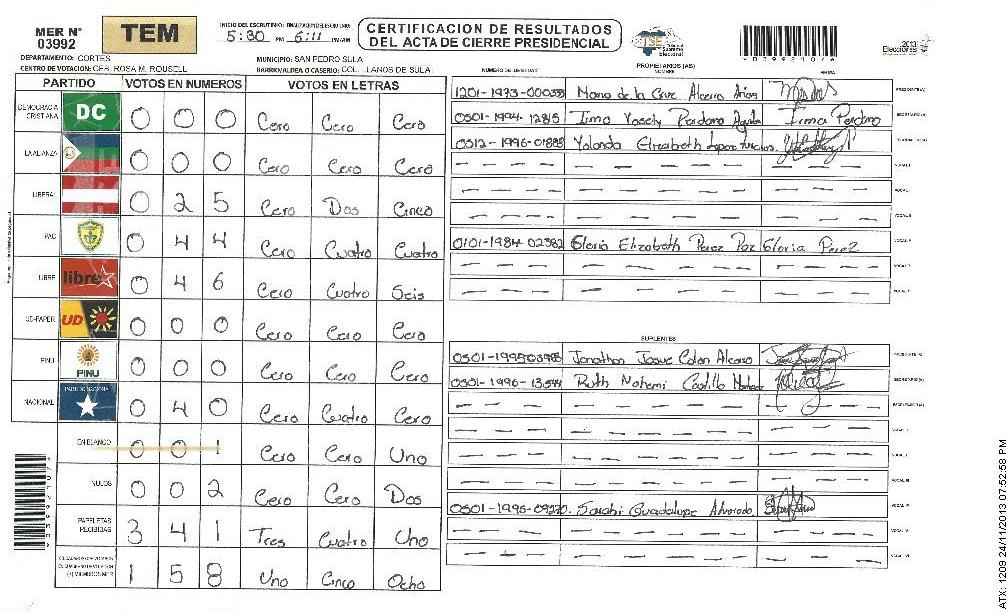 MER N° 03992
TEM
INICIO DEL ESCRUTINIO: FINALIZACION DEL ESCRUTINIO:
5:30 PM 6:11 PM/AM
CERTIFICACION DE RESULTADOS
DEL ACTA DE CIERRE PRESIDENCIAL
TSE Tribunal Supremo Electoral
2013 Elecciones
DEPARTAMENTO: CORTES
MUNICIPIO: SAN PEDRO SULA
CENTRO DE VOTACION: CEB. ROSA M. ROUSELL
BARRIO/ALDEA O CASERIO: COL. LLANOS DE SULA
PARTIDO VOTOS EN NUMEROS VOTOS EN LETRAS
DEMOCRACIA CRISTIANA DC 0 0 0 Cero Cero Cero
LA ALIANZA 0 0 0 Cero Cero Cero
LIBERAL 0 2 5 Cero Dos Cinco
PAC 0 4 4 Cero Cuatro Cuatro
LIBRE libre 0 4 6 Cero Cuatro Seis
UD-FAPER UD 0 0 0 Cero Cero Cero
PINU PINU 0 0 0 Cero Cero Cero
NACIONAL PARTIDO NACIONAL 0 4 0 Cero Cuatro Cero
EN BLANCO 0 0 1 Cero Cero Uno
NULOS 0 0 2 Cero Cero Dos
PAPELETAS RECIBIDAS 3 4 1 Tres Cuatro Uno
CIUDADANOS QUE VOTARON EN CUADERNO DE VOTACION (+) MIEMBROS MER 1 5 8 Uno Cinco Ocho
PROPIETARIOS (AS)
NUMERO DE IDENTIDAD NOMBRE FIRMA
Maria de la Cruz Alcerro Arias PRESIDENTE(A)
0501-1994-12815 Irma Yosely Perdomo Aguila Irma Perdomo SECRETARIO(A)
Yolanda Elizabeth
VOCAL I
0101-1984-02382 Gloria Elizabeth Perez Paz Gloria Perez
SUPLENTES
Jonathan Josue Colon PRESIDENTE
Ruth Nohemi Castillo SECRETARIO(A)
Sarahi Guadalupe Alvarado
ATX: 1209 24/11/2013 07:52:58 PM